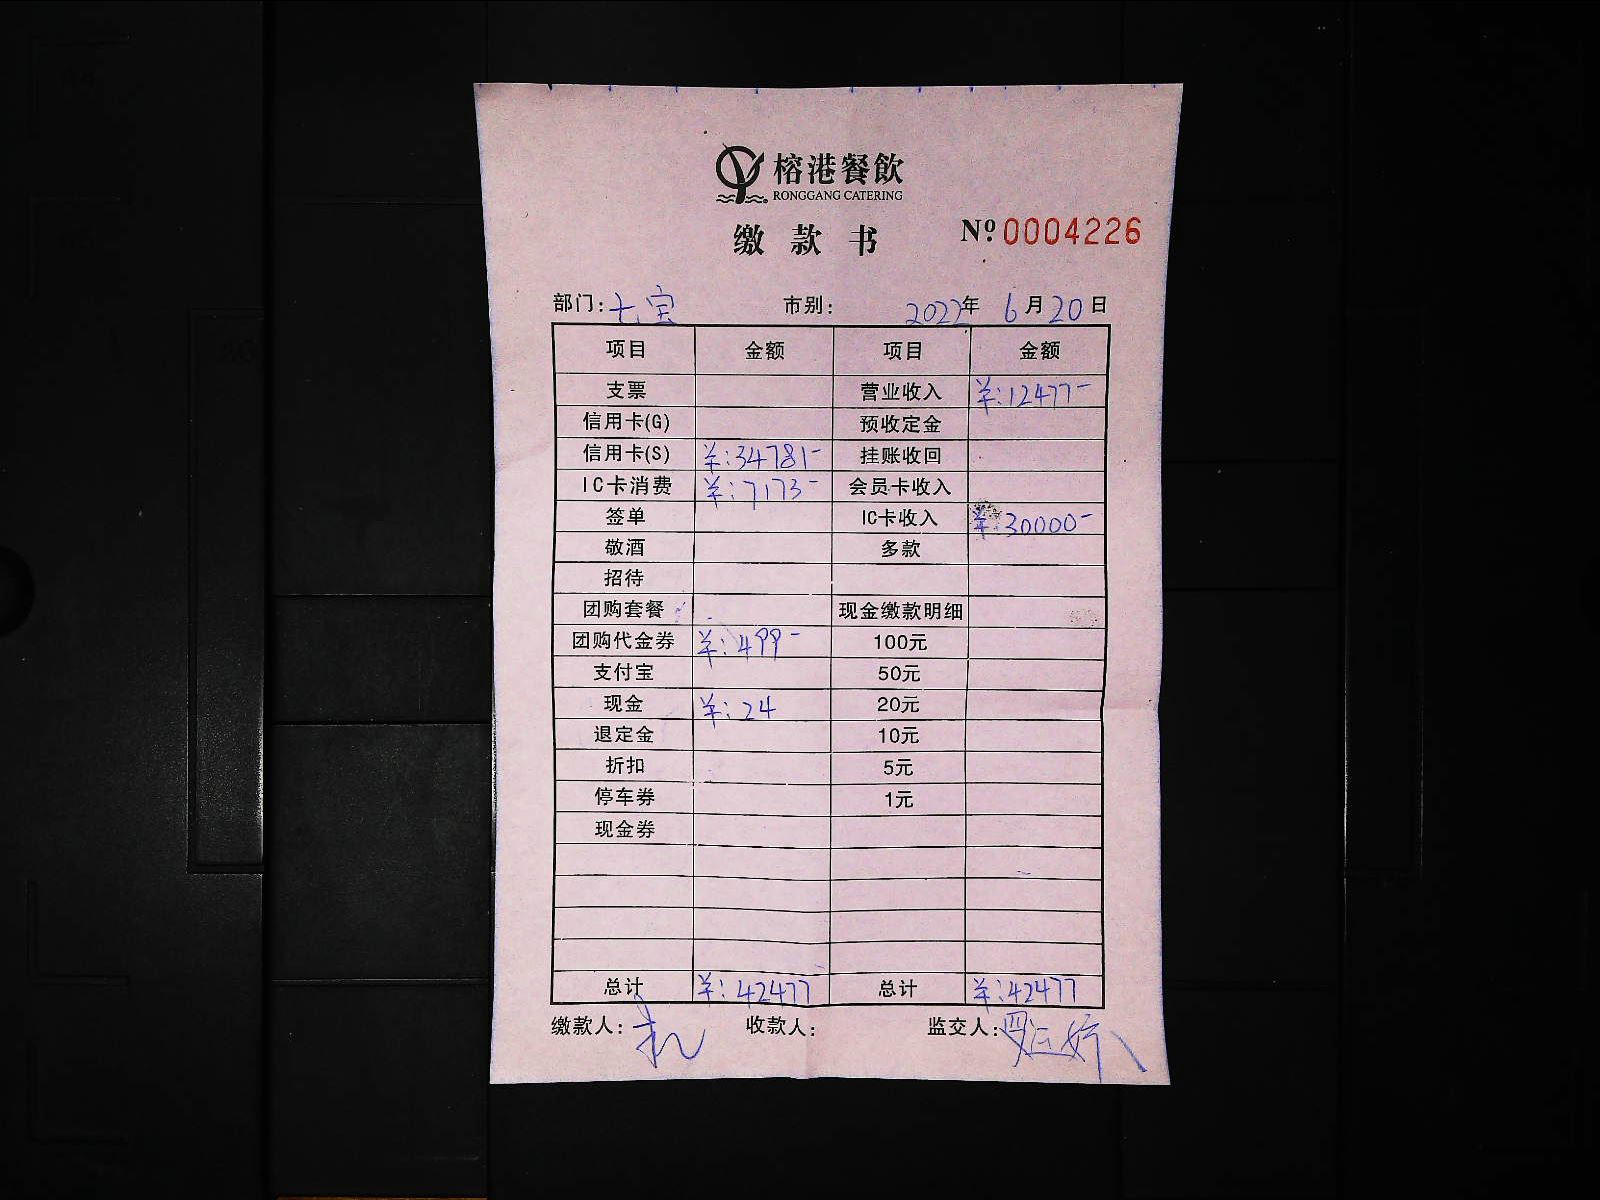 榕港餐飲
RONGGANG CATERING
缴款书 Nº 0004226
部门：七宝 市别： 2022年6月20日
项目 金额 项目 金额
支票 营业收入 ¥：12477-
信用卡(G) 预收定金
信用卡(S) ¥：34781- 挂账收回
IC卡消费 ¥：7173- 会员卡收入
签单 IC卡收入 ¥：30000-
敬酒 多款
招待
团购套餐 现金缴款明细
团购代金券 ¥：499- 100元
支付宝 50元
现金 ¥：24 20元
退定金 10元
折扣 5元
停车券 1元
现金券
总计 ¥：42477 总计 ¥：42477
缴款人： 收款人： 监交人：